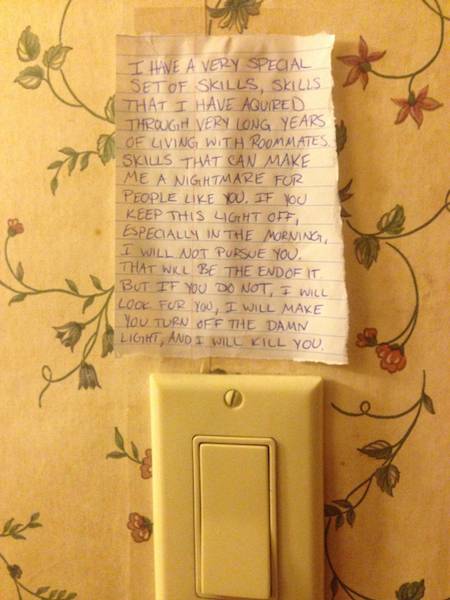 I HAVE A VERY SPECIAL
SET OF SKILLS, SKILLS
THAT I HAVE AQUIRED
THROUGH VERY LONG YEARS
OF LIVING WITH ROOMMATES.
SKILLS THAT CAN MAKE
ME A NIGHTMARE FOR
PEOPLE LIKE YOU. IF YOU
KEEP THIS LIGHT OFF,
ESPECIALLY IN THE MORNING,
I WILL NOT PURSUE YOU.
THAT WILL BE THE END OF IT.
BUT IF YOU DO NOT, I WILL
LOOK FOR YOU, I WILL MAKE
YOU TURN OFF THE DAMN
LIGHT, AND I WILL KILL YOU.